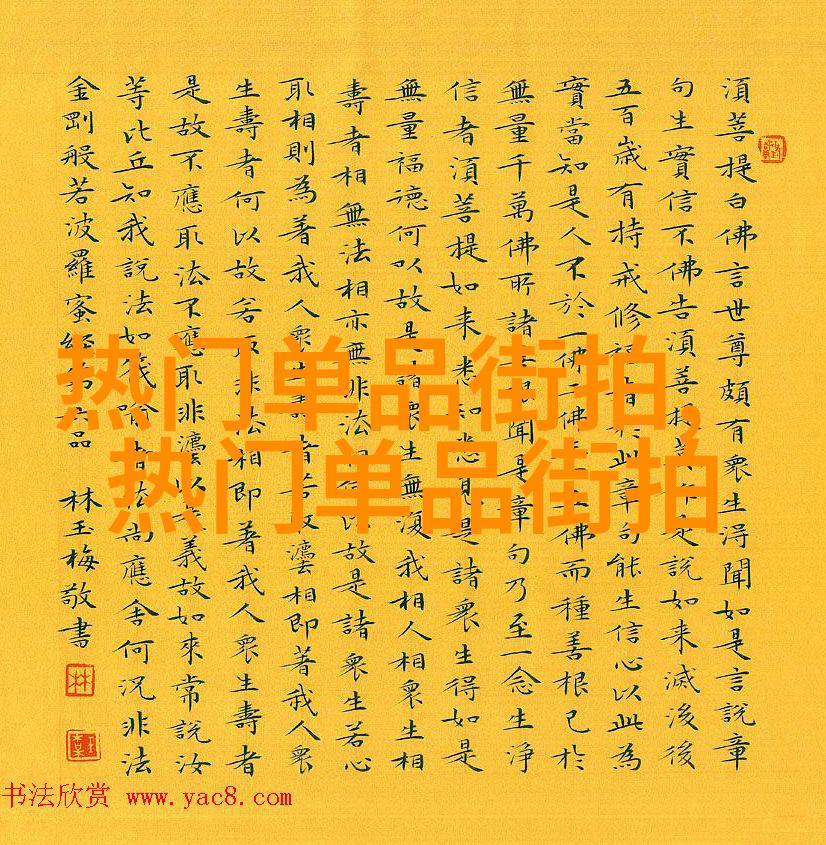 須菩提白佛言世尊頗有衆生得聞如是言說章
句生實信不佛告須菩提莫作是說如来滅後後
五百歲有持戒修福者於此章句能生信心以此為
實當知是人不於一佛二佛三佛而種善根已於
無量千萬佛所諸善根聞是章句乃至一念生淨
信者須菩提如来悉知悉見是諸衆生得如是
無量福德何以故是諸衆生無復我相人相衆生相
壽者相無法相亦無非法相何以故是諸衆生若心
取相則為著我人衆生壽者若取灋相即著我人衆
生壽者何以故若取非法相即著我人衆生壽者
是故不應取法不應取非灋以是義故如來常說汝
等比丘知我說法如筏喻者法尚應舍何況非法
金剛般若波羅蜜經第六品 林玉梅敬書
林
热门单品街拍,
热门单品街拍
书法欣赏 www.yac8.com